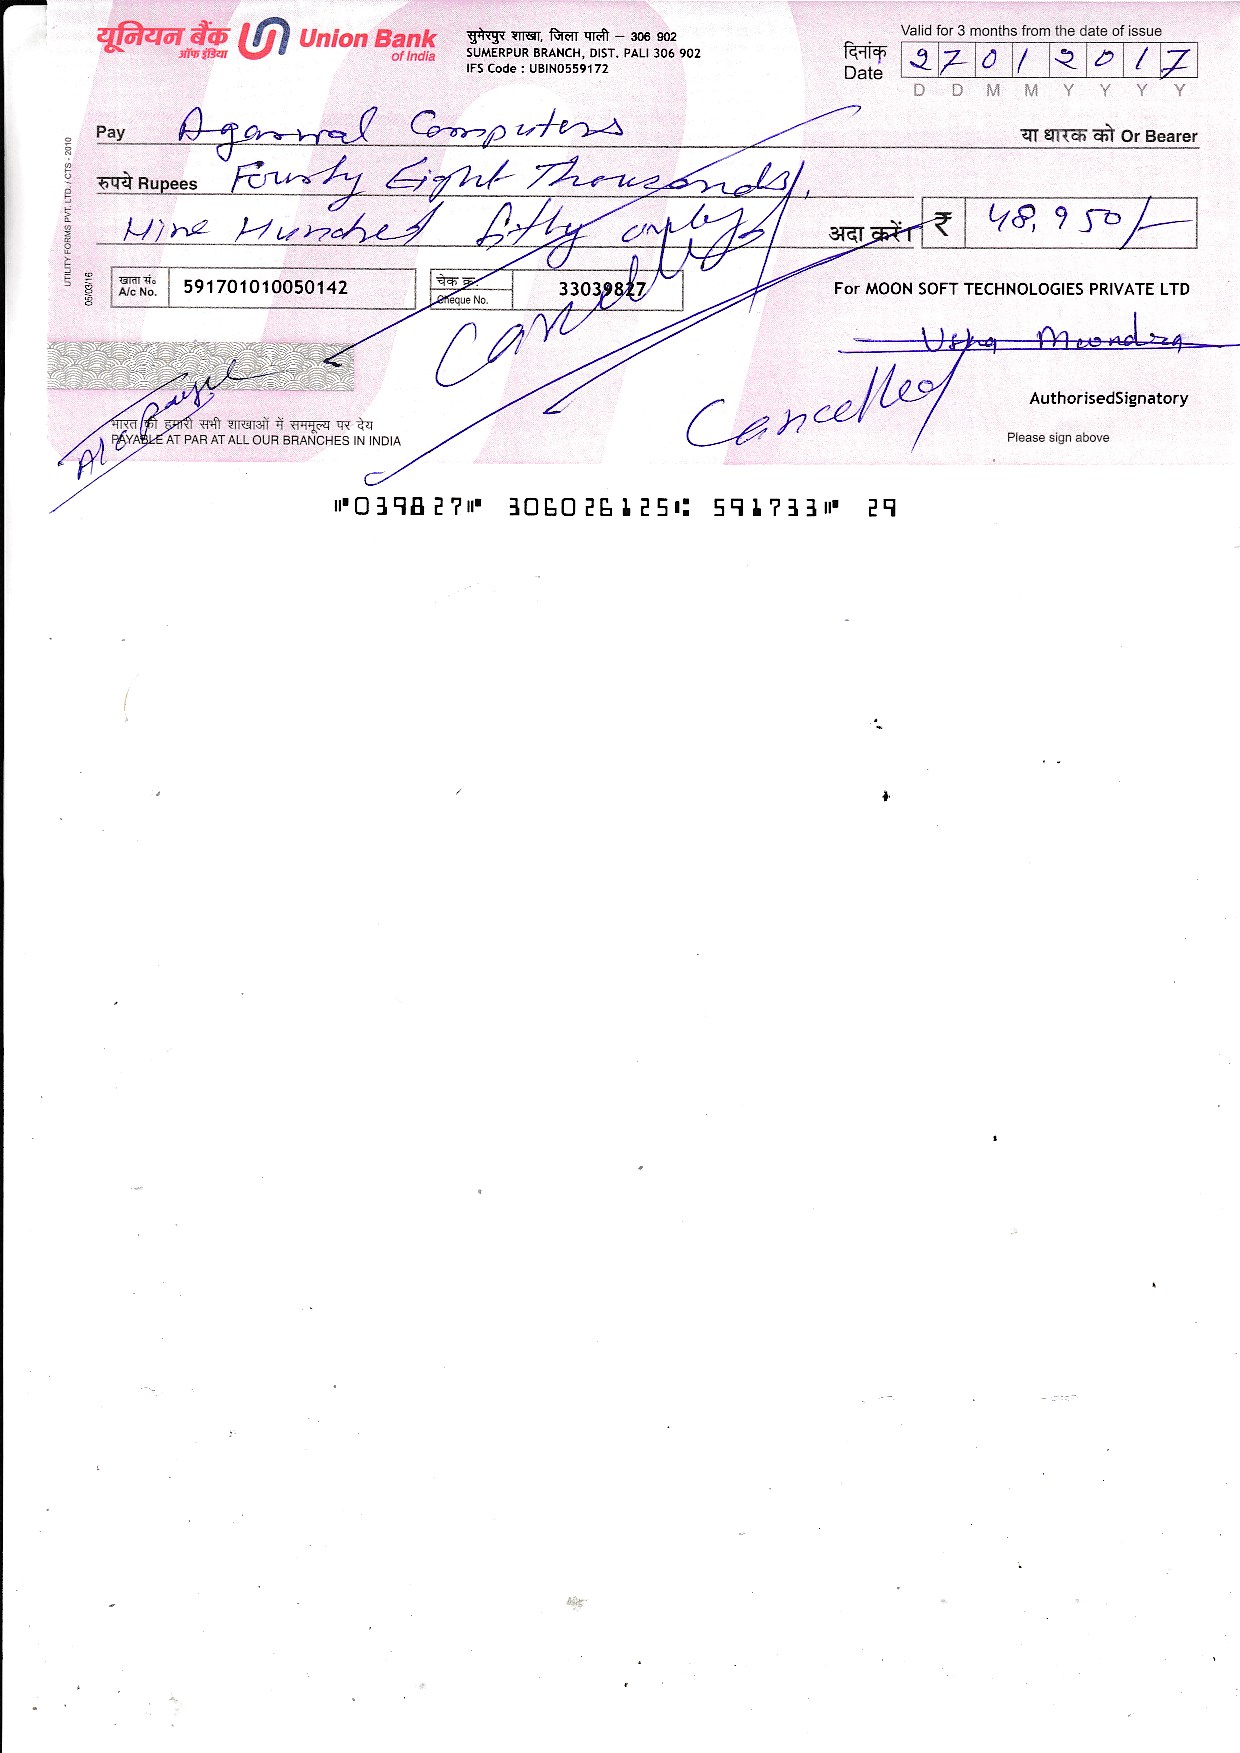 यूनियन बैंक
ऑफ इंडिया
Union Bank
of India
सुमेरपुर शाखा, जिला पाली – 306 902
SUMERPUR BRANCH, DIST. PALI 306 902
IFS Code : UBIN0559172
Valid for 3 months from the date of issue
दिनांक
Date
27012017
D D M M Y Y Y Y
Pay Agarwal Computers या धारक को Or Bearer
रुपये Rupees Fourty Eight Thousands,
Nine Hundred fifty only अदा करें। ₹ 48,950/-
खाता सं०
A/c No. 591701010050142
चेक क्र.
Cheque No. 33039827
For MOON SOFT TECHNOLOGIES PRIVATE LTD
Cancelled
Usha Moondra
Cancelled
AuthorisedSignatory
Please sign above
A/c Payee
भारत की हमारी सभी शाखाओं में सममूल्य पर देय
PAYABLE AT PAR AT ALL OUR BRANCHES IN INDIA
UTILITY FORMS PVT. LTD. / CTS - 2010
05/03/16
⑈039827⑈ 306026125⑆ 591733⑈ 29